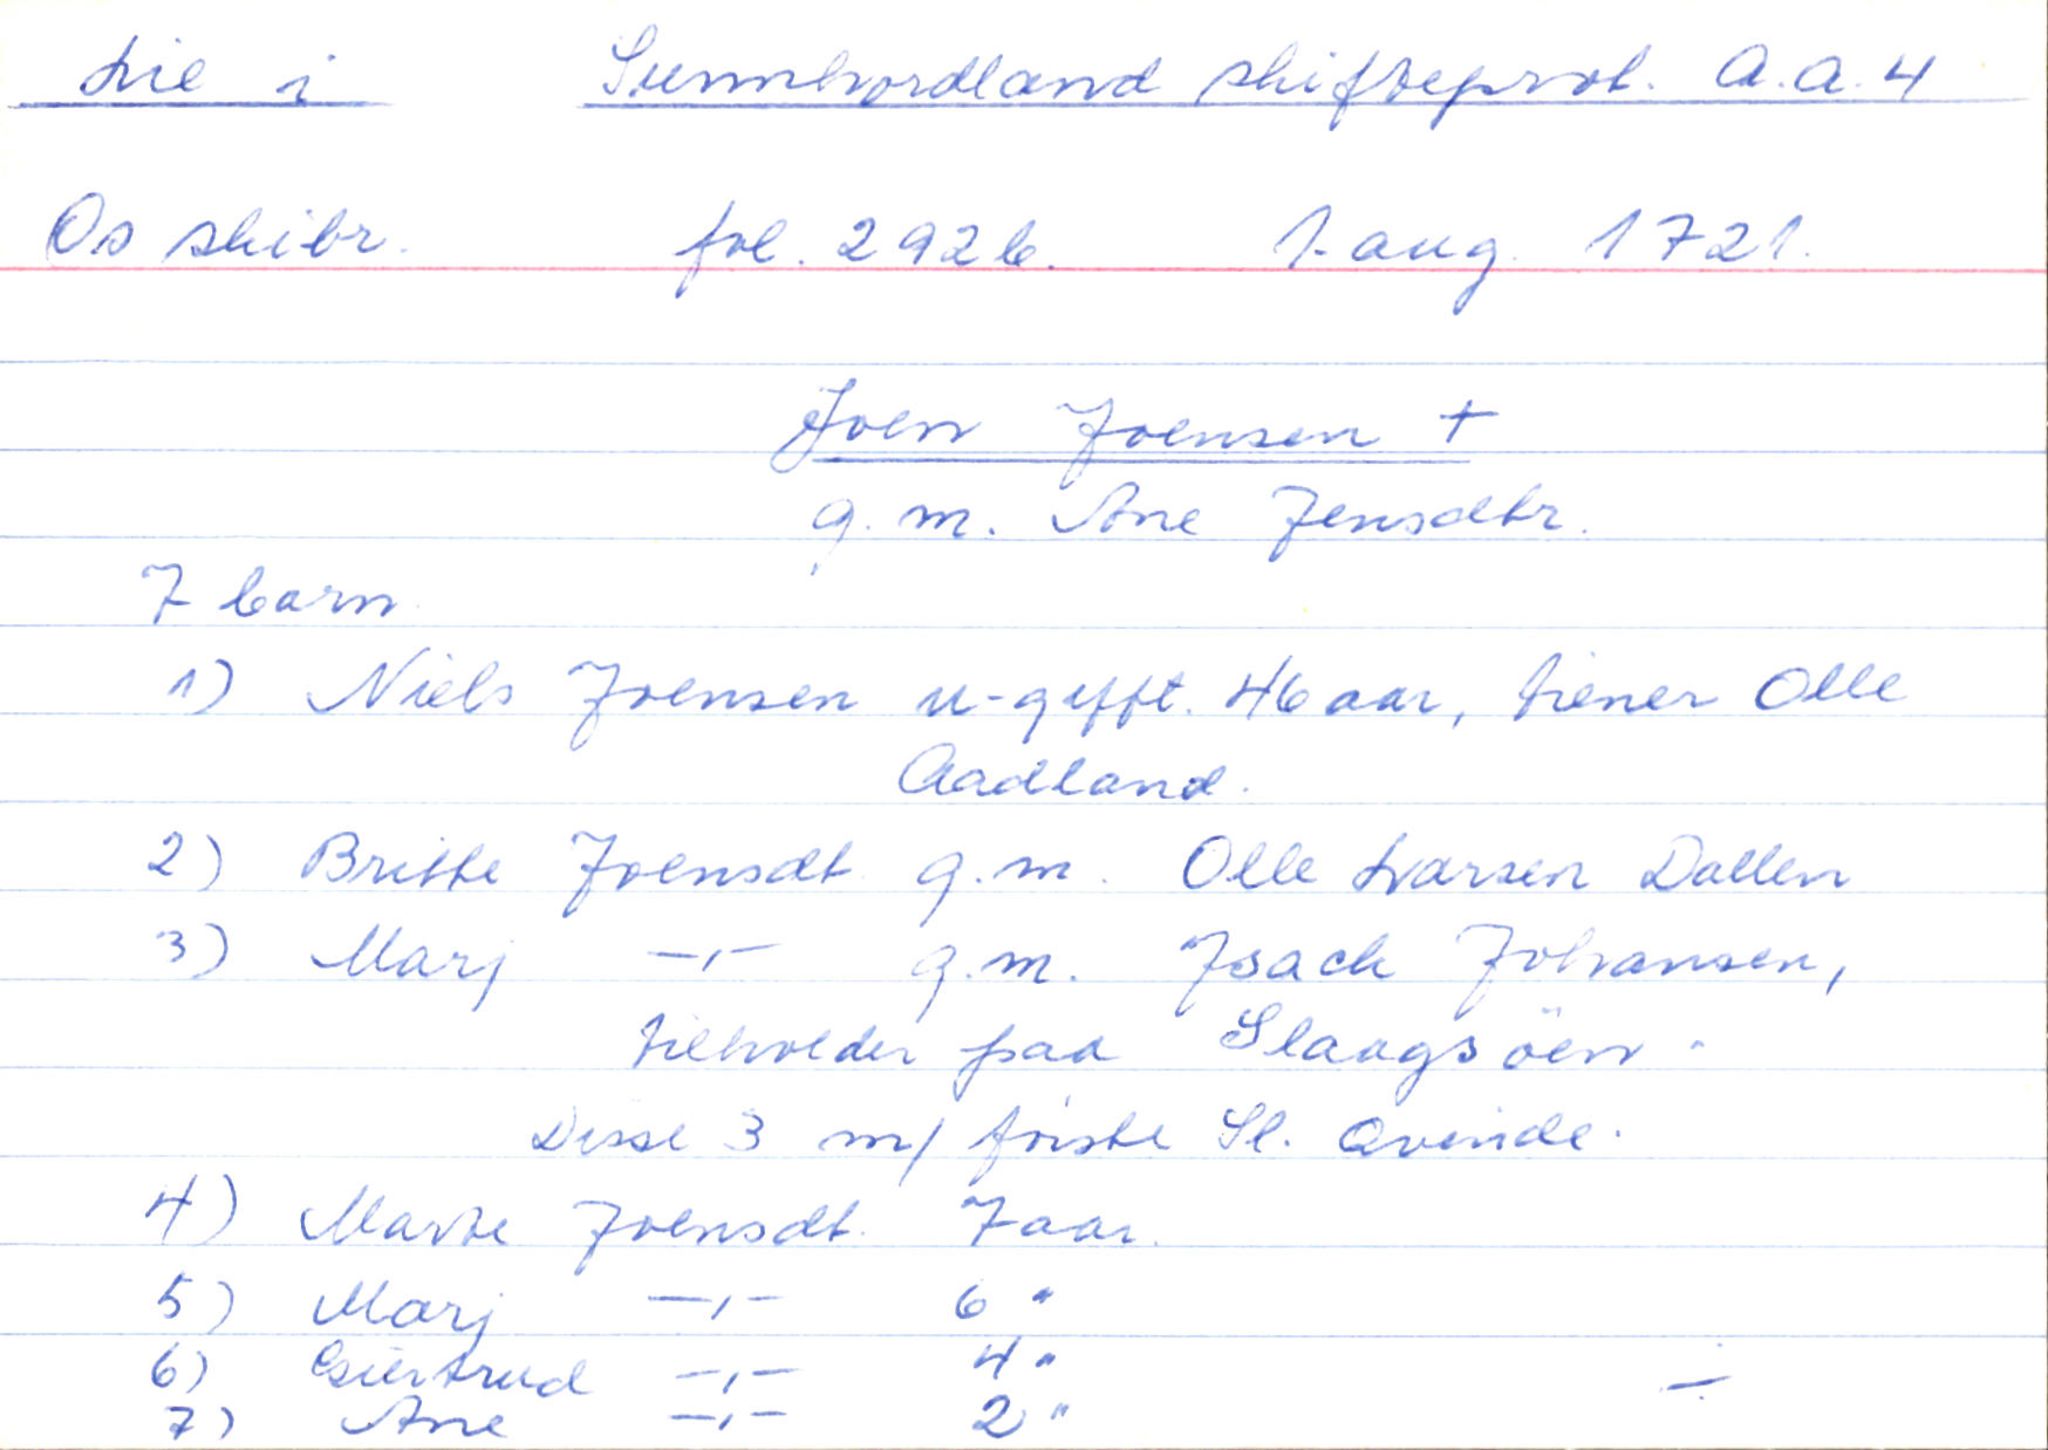 Lie i Sunnhordland skifteprot. A.a.4
Os skibr. fol. 292b. 1. aug. 1721.
Joen Joensen +
g. m. Ane Jensdtr.
7 barn
1) Niels Joensen u-gifft. 46 aar, tiener Olle
Aadland.
2) Britte Joensdt. g.m. Olle Larsen Dallen
3) Marj —,— g.m. Isack Johansen,
tilholder paa Slaagsöen.
Disse 3 m/ förste Sl. Qvinde.
4) Marte Joensdt. 7 aar.
5) Marj —,— 6 "
6) Giertrud —,— 4 "
7) Ane —,— 2 "